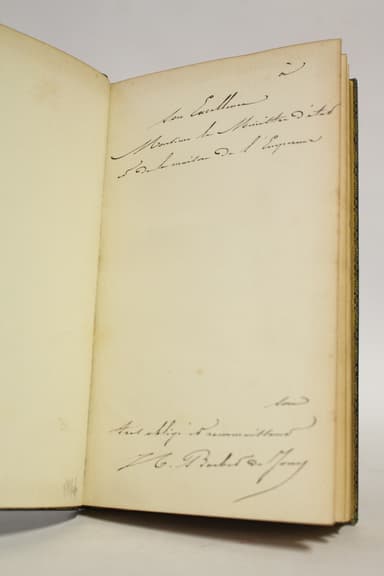 à
Son Excellence
Monsieur le Ministre d'état
et de la maison de l'Empereur
son
très obligé et reconnaissant
H. Barbet de Jouy